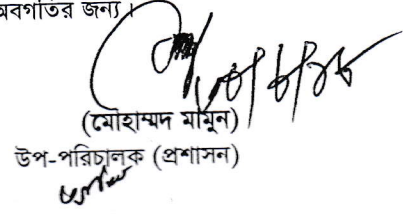 অবগতির জন্য।
(মোহাম্মদ মামুন)
উপ-পরিচালক (প্রশাসন)